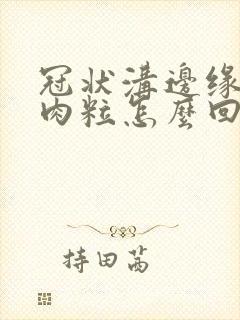 冠状溝邊缘
肉粒怎麼回
持田茜